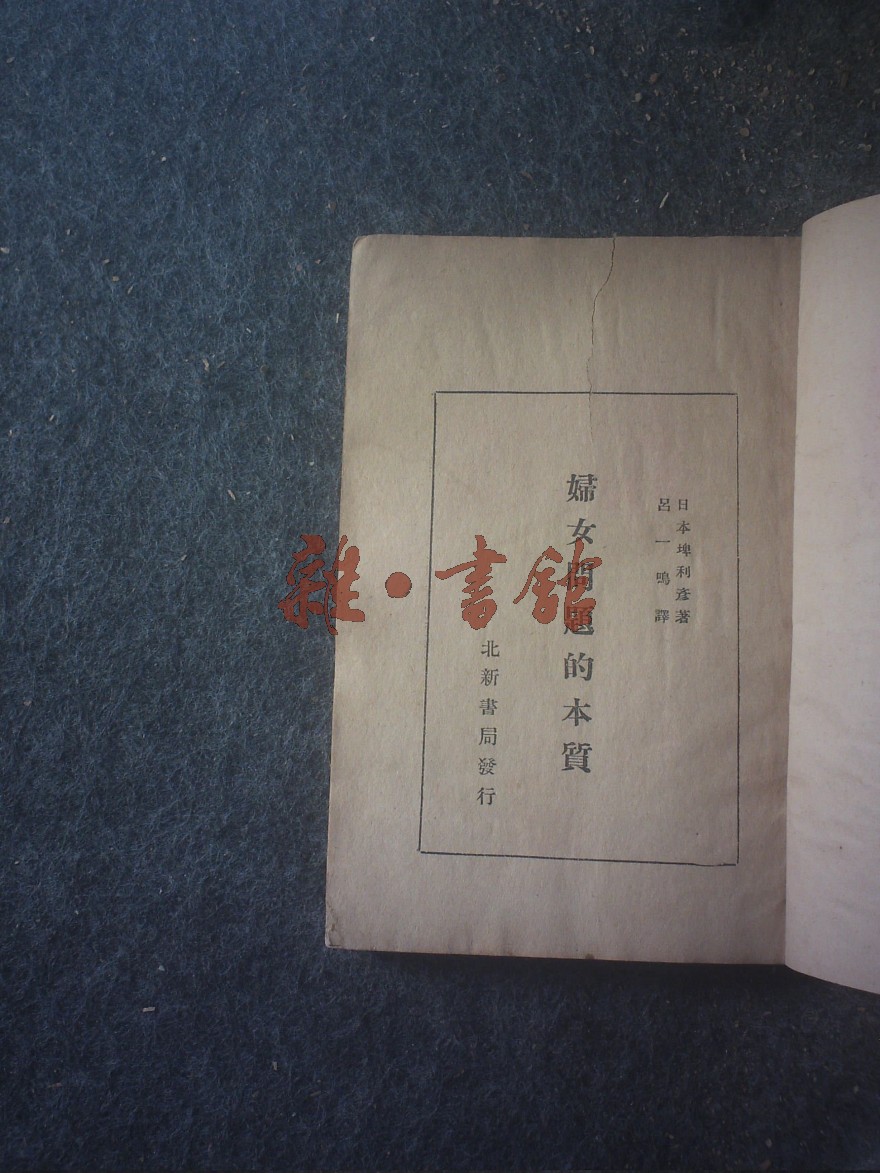 日本埤利彥著
呂一鳴譯
婦女問題的本質
北新書局發行
雜·書舘